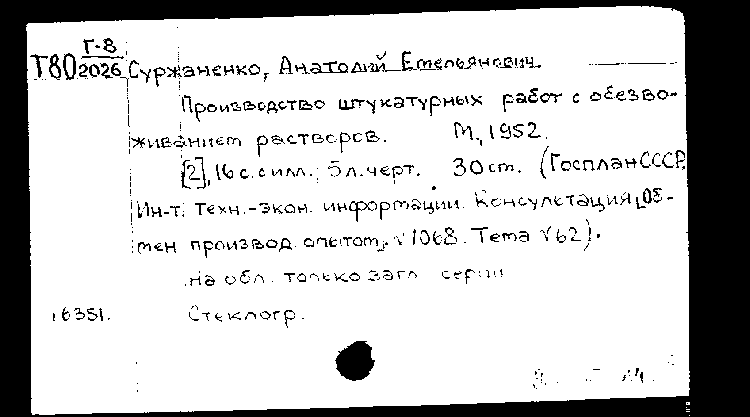 Г-8
Т80 2026 Суржаненко, Анатолий Емельянович.
Производство штукатурных работ с обезво-
живанием растворов. М., 1952.
[2], 16 с. с илл.; 5 л. черт. 30 ст. (Госплан СССР.
Ин-т. техн.-экон. информации. Консультация, Об-
мен производ. опытом, №1068. Тема №62).
на обл. только загл серии
16351. Стеклогр.